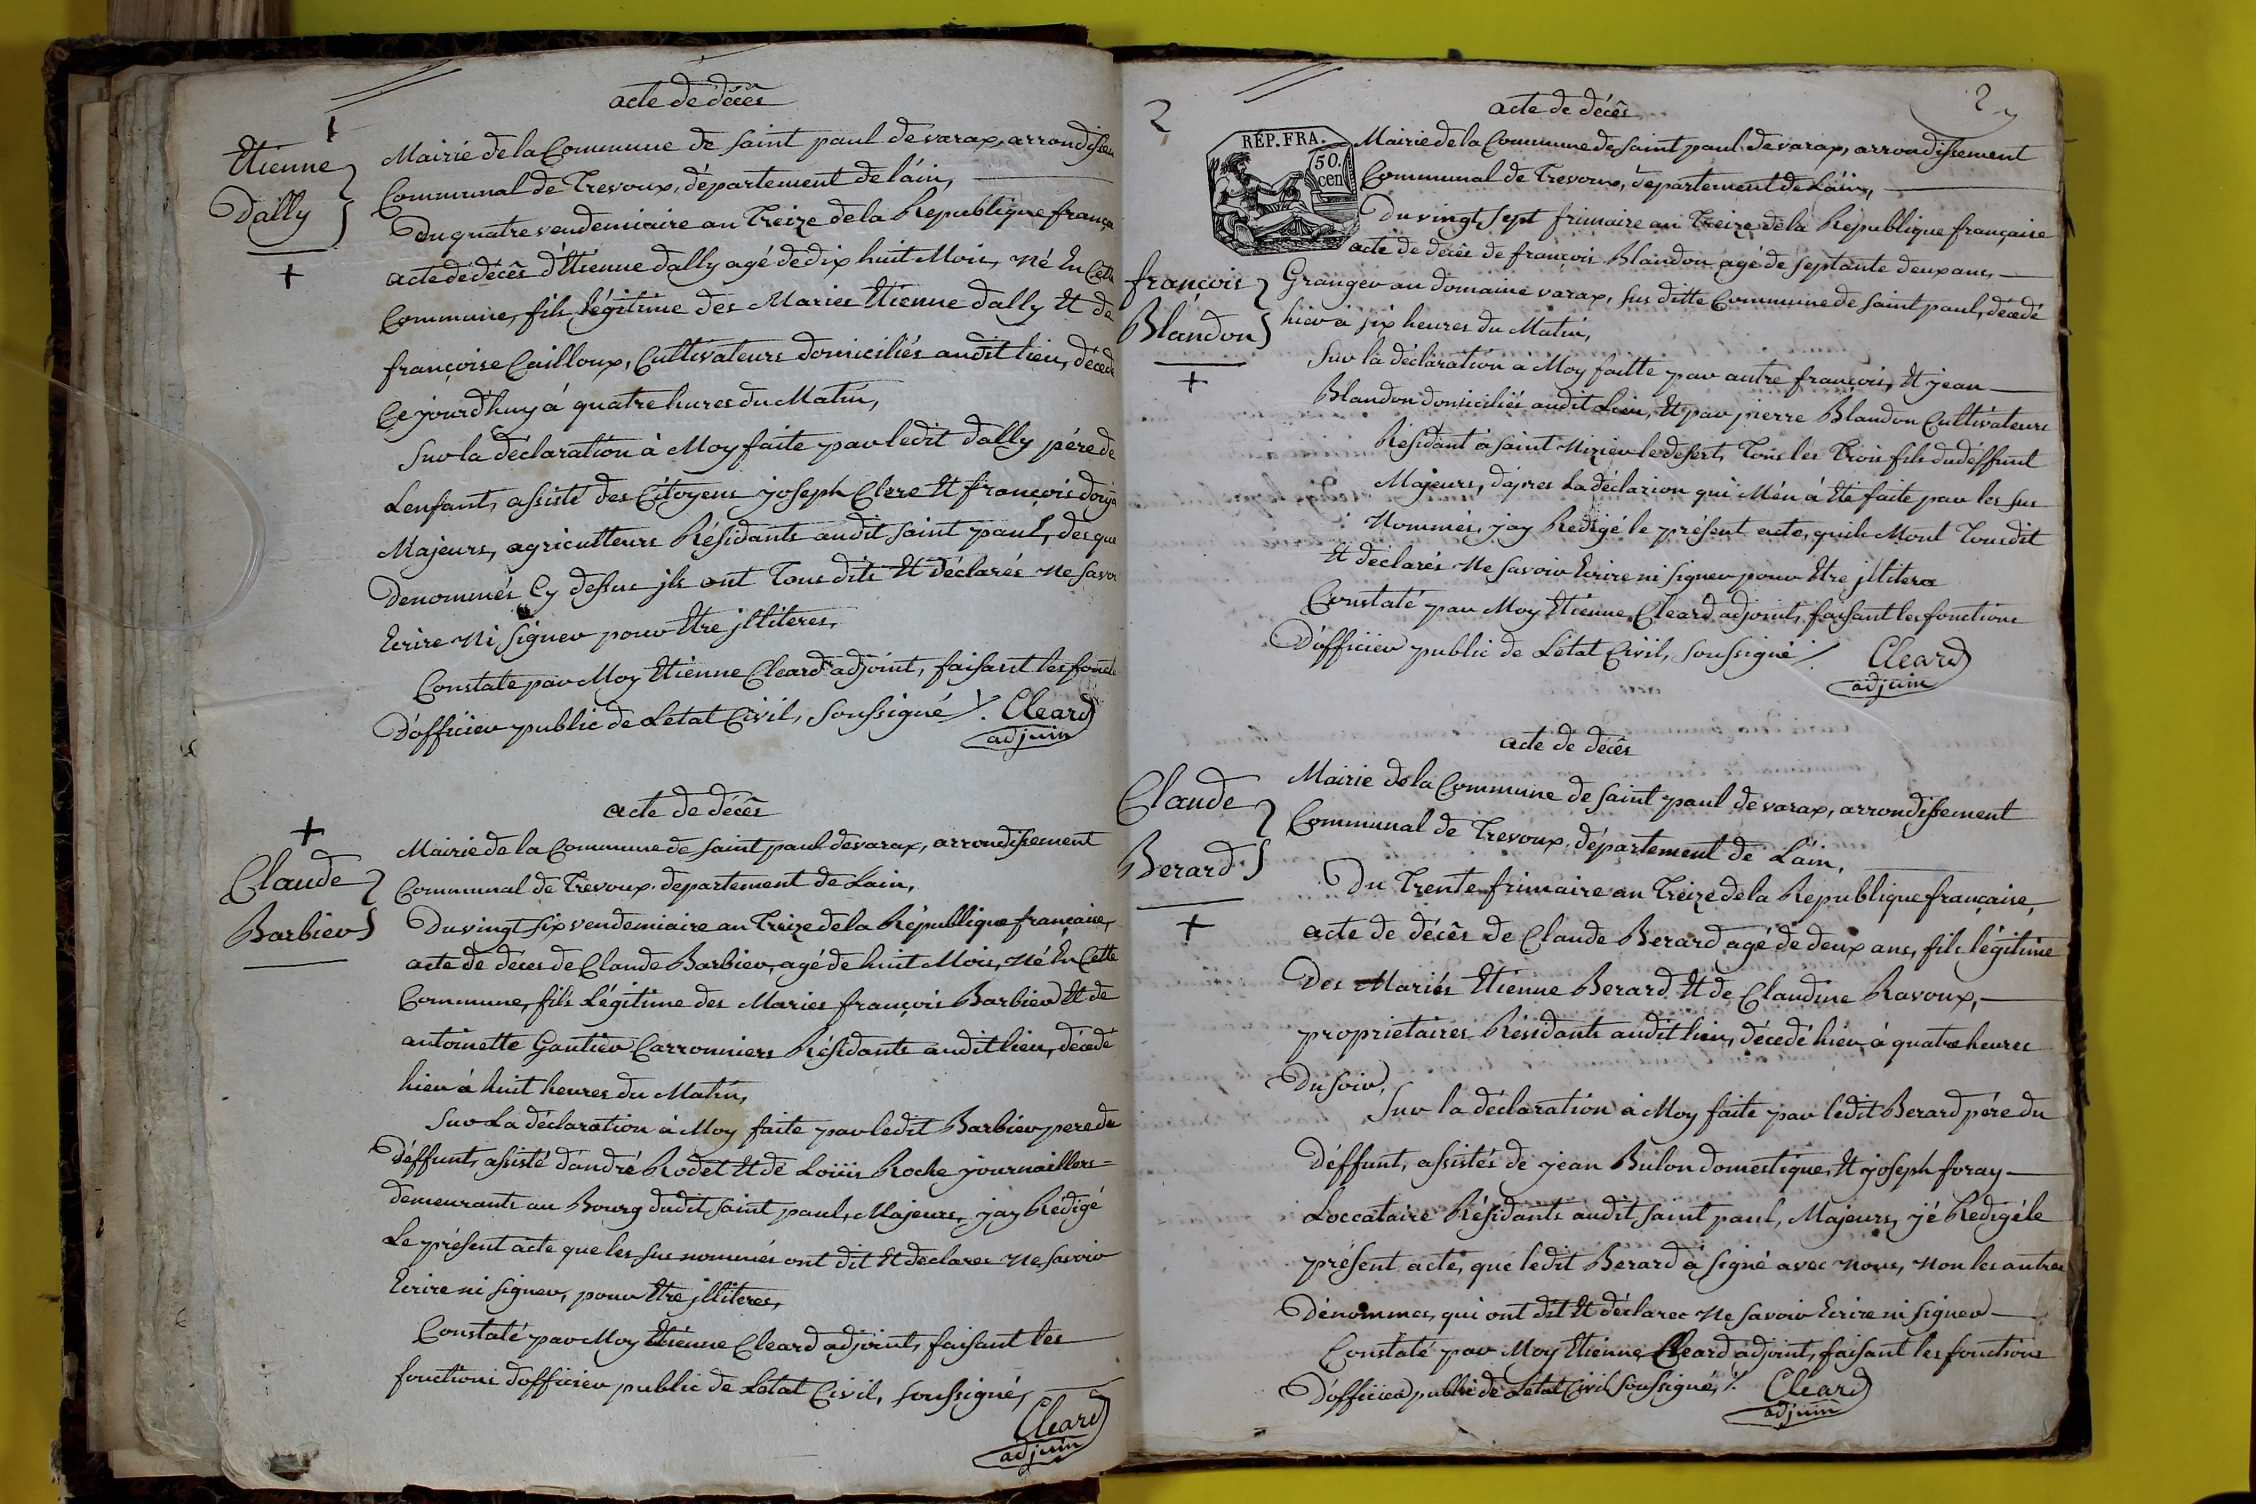 acte de décès
1
Etienne
Dally
+
Mairie de la Commune de saint paul de varax, arrondissem
Communal de Trevoux, département de l'ain,
Du quatre vendemiaire an Treize de la Republique françai
acte de décès d'Etienne dally agé de dix huit Mois, Né En Cette
Commune, fils légitime des Maries Etienne dally Et de
françoise Cailloux, Cultivateurs domiciliés audit lieu, décédé
Cejourd'huy à quatre hures du Matin,
Sur la déclaration à Moy faite par ledit dally pére de
Lenfant, assisté des Citoyens joseph Clere Et françois
Majeurs, agriculteurs Résidants audit saint paul, des que
Denommés Cy dessus jls ont Tous dits Et déclarés Ne savo
Ecrire Ni signer pour Etre jlliteres,
Constaté par Moy Etienne Cleard adjoint, faisant les foncti
D'officier public de Letat Civil, soussigné ⁒. Cleard
adjuin
acte de décès
+
Claude
Barbier
Mairie de la Commune de saint paul de varax, arrondissement
Communal de Trevoux. departement de Lain,
Du vingt six vendemiaire an Treize de la République française,
acte de déces de Claude Barbier, agé de huit Mois, Né En Cette
Commune, fils Légitime des Maries françois Barbier Et de
antoinette Gautier Carronniers Résidants audit lieu, décédé
hier à huit heures du Matin,
Sur La déclaration à Moy faite par ledit Barbier pere du
Déffunt, assisté d'andré Rodet Et de Loüis Roche journaillers =
demeurants au Bourg dudit saint paul, Majeurs, jay Rédigé
Le présent acte que les sus nommés ont dit Et declarer Ne savoir
Ecrire ni signer, pour Etre jlliteres,
Constaté par Moy Etienne Cleard adjoint, faisant les
fonctions d'officier public de Letat Civil, soussigné,
Cleard
adjuin
2
2
acte de décès
RÉP. FRA.
50.
cen
françois
Blandon
+
Mairie de la Commune de saint paul de varax, arrondissement
Communal de Trevoux, département de L'ain,
Du vingt sept frimaire an Treize de la Republique française
acte de décès de françois Blandon agé de septante deux ans,
Granger au domaine varax, sus ditte Commune de saint paul, décédé
hier à six heures du Matin,
Sur la déclaration à Moy faitte par autre françois, Et jean
Blandon domiciliés audit Lieu, Et par pierre Blandon Cultivateurs
Résidant à saint Nizier le desert, Tous les Trois fils du déffunt
Majeurs, d'apres La déclarion qui M'en à Eté faite par les sus
Nommés, jay Redigé le présent acte, quils Mont Tous dit
Et déclarés Ne savoir Ecrire ni signer pour Etre jlliteres
Constaté par Moy Etienne Cleard adjoint, faisant les fonctions
D'officier public de Létat Civil, soussigné ⁒. Cleard
adjuin
acte de décès
Claude
Berard
+
Mairie de la Commune de saint paul de varax, arrondissement
Communal de Trevoux, département de L'ain,
Du Trente frimaire an Treize de la Republique française,
acte de décès de Claude Berard agé de deux ans, fils légitime
Des Mariés Etienne Berard, Et de Claudine Ravoux,
proprietaires Résidants audit lieu, décedé hier à quatre heures
Du soir,
Sur la déclaration à Moy faite par ledit Berard pére du
Déffunt, assistés de jean Bulon domestique, Et joseph foray
Loccataire Résidants audit saint paul, Majeurs, jé Redigé le
présent acte, que ledit Berard à signé avec Nous, Non les autres
Dénommés, qui ont dit Et déclarer Ne savoir Ecrire ni signer
Constaté par Moy Etienne Cleard adjoint, faisant les fonctions
D'officier public de Letat Civil soussigné, ⁒. Cleard
adjuin